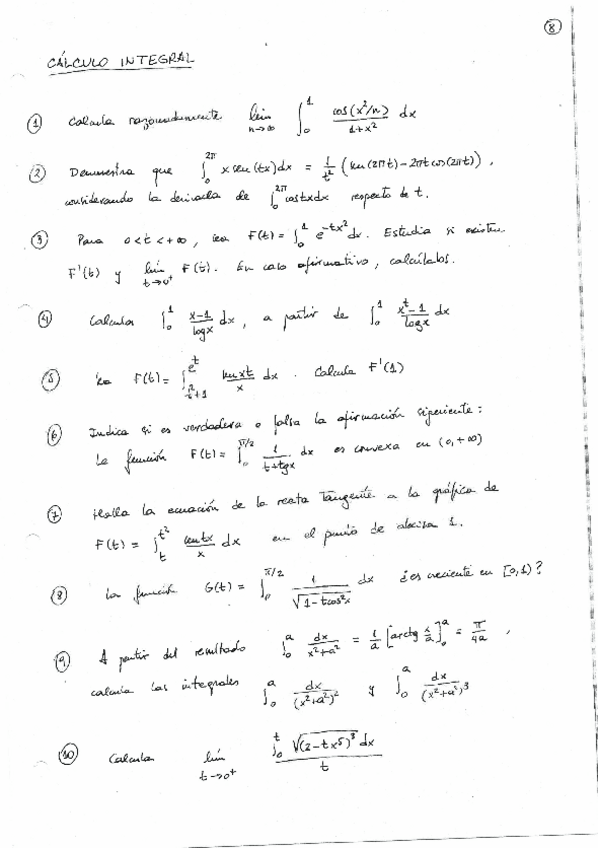 8
CÁLCULO INTEGRAL
① Calcula razonadamente lím n→∞ ∫₀¹ cos(x²/n)/(1+x²) dx
② Demuestra que ∫₀^{2π} x sen(tx)dx = 1/t² (sen(2πt) - 2πt cos(2πt)),
considerando la derivada de ∫₀^{2π} cos tx dx respecto de t.
③ Para 0<t<+∞, sea F(t) = ∫₀¹ e^{-tx²} dx. Estudia si existen
F'(t) y lím t→0⁺ F(t). En caso afirmativo, calcúlalos.
④ Calcular ∫₀¹ (x-1)/(log x) dx, a partir de ∫₀¹ (x^t-1)/(log x) dx
⑤ Sea F(t) = ∫ e^t sen xt/x dx. Calcula F'(1)
⑥ Indica si es verdadera o falsa la afirmación siguiente:
La función F(t) = ∫₀^{π/2} 1/(t+tg x) dx es convexa en (0,+∞)
⑦ Halla la ecuación de la recta tangente a la gráfica de
F(t) = ∫_t^{t²} sen tx/x dx en el punto de abscisa 1.
⑧ La función G(t) = ∫₀^{π/2} 1/√(1-t cos²x) dx ¿es creciente en [0,1)?
⑨ A partir del resultado ∫₀^a dx/(x²+a²) = 1/a [arctg x/a]₀^a = π/4a,
calcula las integrales ∫₀^a dx/(x²+a²)² y ∫₀^a dx/(x²+a²)³
⑩ Calcula lím t→0⁺ ∫₀^t √(2-tx⁵)³ dx / t